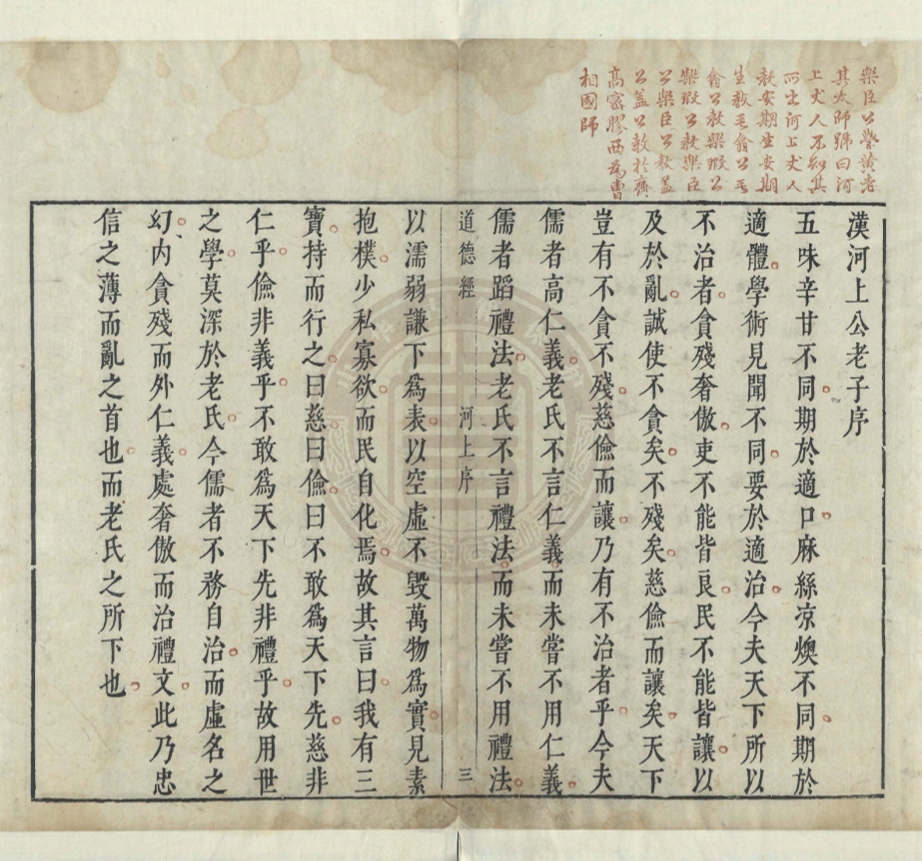 樂臣公學黃老
其太師號曰河
上丈人不知其
所出河上丈人
教安期生安期
生教毛翕公毛
翕公教樂瑕公
樂瑕公教樂臣
公樂臣公教蓋
公蓋公教於齊
高密膠西為曹
相國師
漢河上公老子序
五味辛甘不同期於適口麻絲凉燠不同期於
適體學術見聞不同要於適治今夫天下所以
不治者貪殘奢傲吏不能皆良民不能皆讓以
及於亂誠使不貪矣不殘矣慈儉而讓矣天下
豈有不貪不殘慈儉而讓乃有不治者乎今夫
儒者高仁義老氏不言仁義而未嘗不用仁義
儒者蹈禮法老氏不言禮法而未嘗不用禮法
道德經 河上序 三
以濡弱謙下爲表以空虛不毀萬物爲實見素
抱樸少私寡欲而民自化焉故其言曰我有三
寶持而行之曰慈曰儉曰不敢爲天下先慈非
仁乎儉非義乎不敢爲天下先非禮乎故用世
之學莫深於老氏今儒者不務自治而虛名之
幻内貪殘而外仁義處奢傲而治禮文此乃忠
信之薄而亂之首也而老氏之所下也